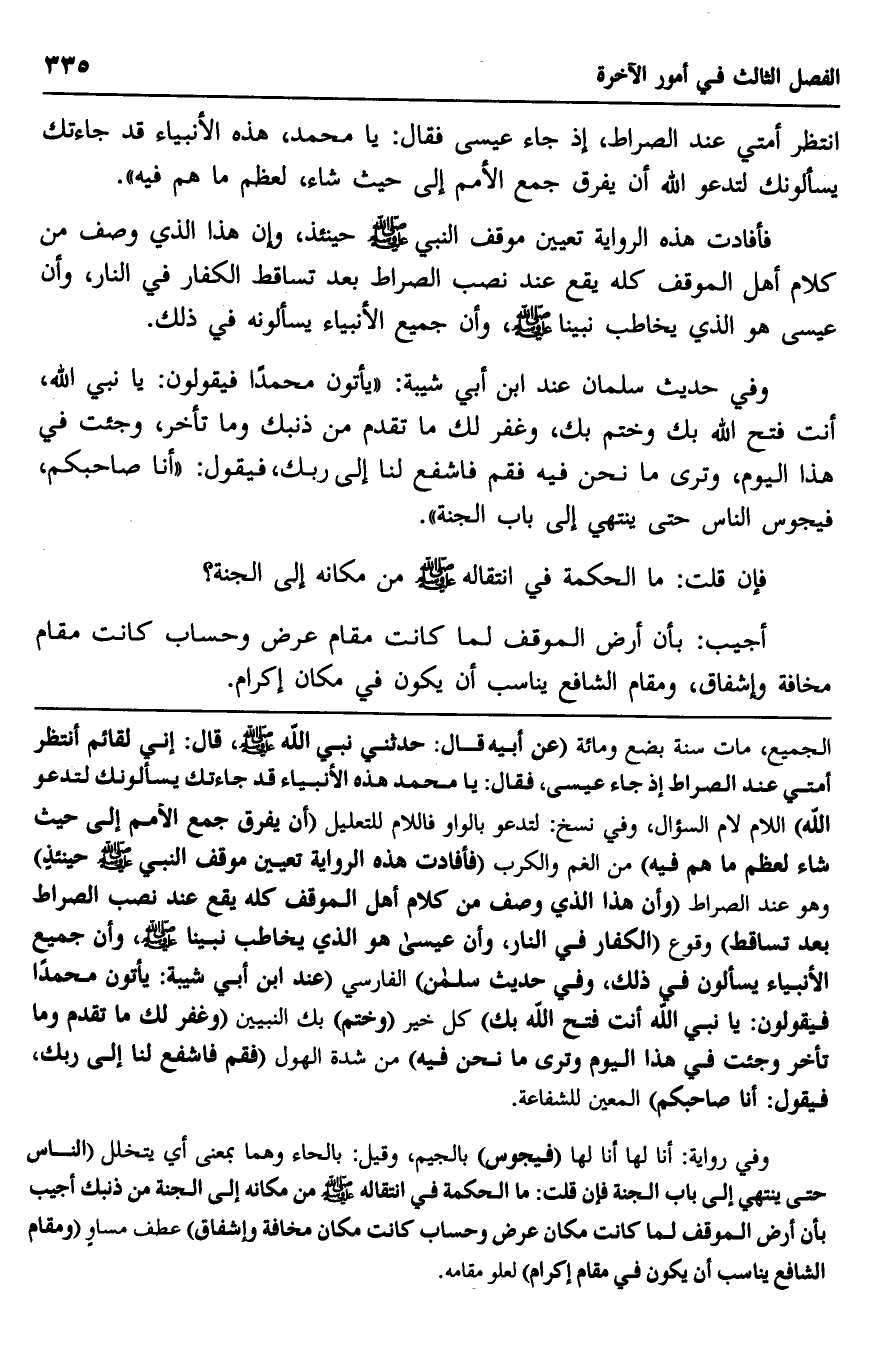 الفصل الثالث في أمور الآخرة ٣٣٥
انتظر أمتي عند الصراط، إذ جاء عيسى فقال: يا محمد، هذه الأنبياء قد جاءتك
يسألونك لتدعو الله أن يفرق جمع الأمم إلى حيث شاء، لعظم ما هم فيه».
فأفادت هذه الرواية تعيين موقف النبي ﷺ حينئذ، وإن هذا الذي وصف من
كلام أهل الموقف كله يقع عند نصب الصراط بعد تساقط الكفار في النار، وأن
عيسى هو الذي يخاطب نبينا ﷺ، وأن جميع الأنبياء يسألونه في ذلك.
وفي حديث سلمان عند ابن أبي شيبة: «يأتون محمدًا فيقولون: يا نبي الله،
أنت فتح الله بك وختم بك، وغفر لك ما تقدم من ذنبك وما تأخر، وجئت في
هذا اليوم، وترى ما نحن فيه فقم فاشفع لنا إلى ربك، فيقول: «أنا صاحبكم،
فيجوس الناس حتى ينتهي إلى باب الجنة».
فإن قلت: ما الحكمة في انتقاله ﷺ من مكانه إلى الجنة؟
أجيب: بأن أرض الموقف لما كانت مقام عرض وحساب كانت مقام
مخافة وإشفاق، ومقام الشافع يناسب أن يكون في مكان إكرام.
الجميع، مات سنة بضع ومائة (عن أبيه قال: حدثني نبي الله ﷺ، قال: إني لقائم أنتظر
أمتي عند الصراط إذ جاء عيسى، فقال: يا محمد هذه الأنبياء قد جاءتك يسألونك لتدعو
الله) اللام لام السؤال، وفي نسخ: لتدعو بالواو فاللام للتعليل (أن يفرق جمع الأمم إلى حيث
شاء لعظم ما هم فيه) من الغم والكرب (فأفادت هذه الرواية تعيين موقف النبي ﷺ حينئذٍ)
وهو عند الصراط (وأن هذا الذي وصف من كلام أهل الموقف كله يقع عند نصب الصراط
بعد تساقط) وقوع (الكفار في النار، وأن عيسىٰ هو الذي يخاطب نبينا ﷺ، وأن جميع
الأنبياء يسألون في ذلك، وفي حديث سلمٰن) الفارسي (عند ابن أبي شيبة: يأتون محمدًا
فيقولون: يا نبي الله أنت فتح الله بك) كل خير (وختم) بك النبيين (وغفر لك ما تقدم وما
تأخر وجئت في هذا اليوم وترى ما نحن فيه) من شدة الهول (فقم فاشفع لنا إلى ربك،
فيقول: أنا صاحبكم) المعين للشفاعة.
وفي رواية: أنا لها أنا لها (فيجوس) بالجيم، وقيل: بالحاء وهما بمعنى أي يتخلل (الناس
حتى ينتهي إلى باب الجنة فإن قلت: ما الحكمة في انتقاله ﷺ من مكانه إلى الجنة من ذنبك أجيب
بأن أرض الموقف لما كانت مكان عرض وحساب كانت مكان مخافة وإشفاق) عطف مساوٍ (ومقام
الشافع يناسب أن يكون في مقام إكرام) لعلو مقامه.